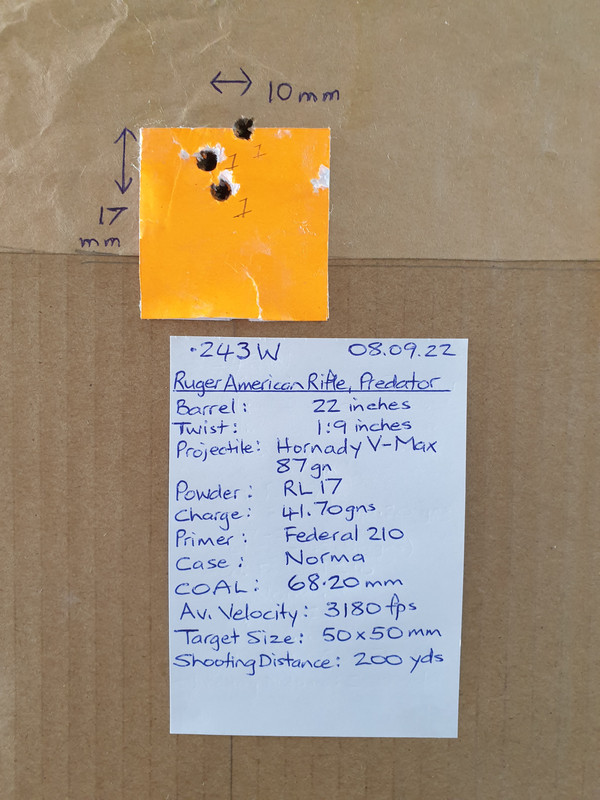 10 mm
17
mm
1
1
1
.243W 08.09.22
Ruger American Rifle, Predator
Barrel: 22 inches
Twist: 1:9 inches
Projectile: Hornady V-Max
87gn
Powder: RL 17
Charge: 41.70gns
Primer: Federal 210
Case: Norma
COAL: 68.20 mm
Av. Velocity: 3180 fps
Target Size: 50x50 mm
Shooting Distance: 200 yds